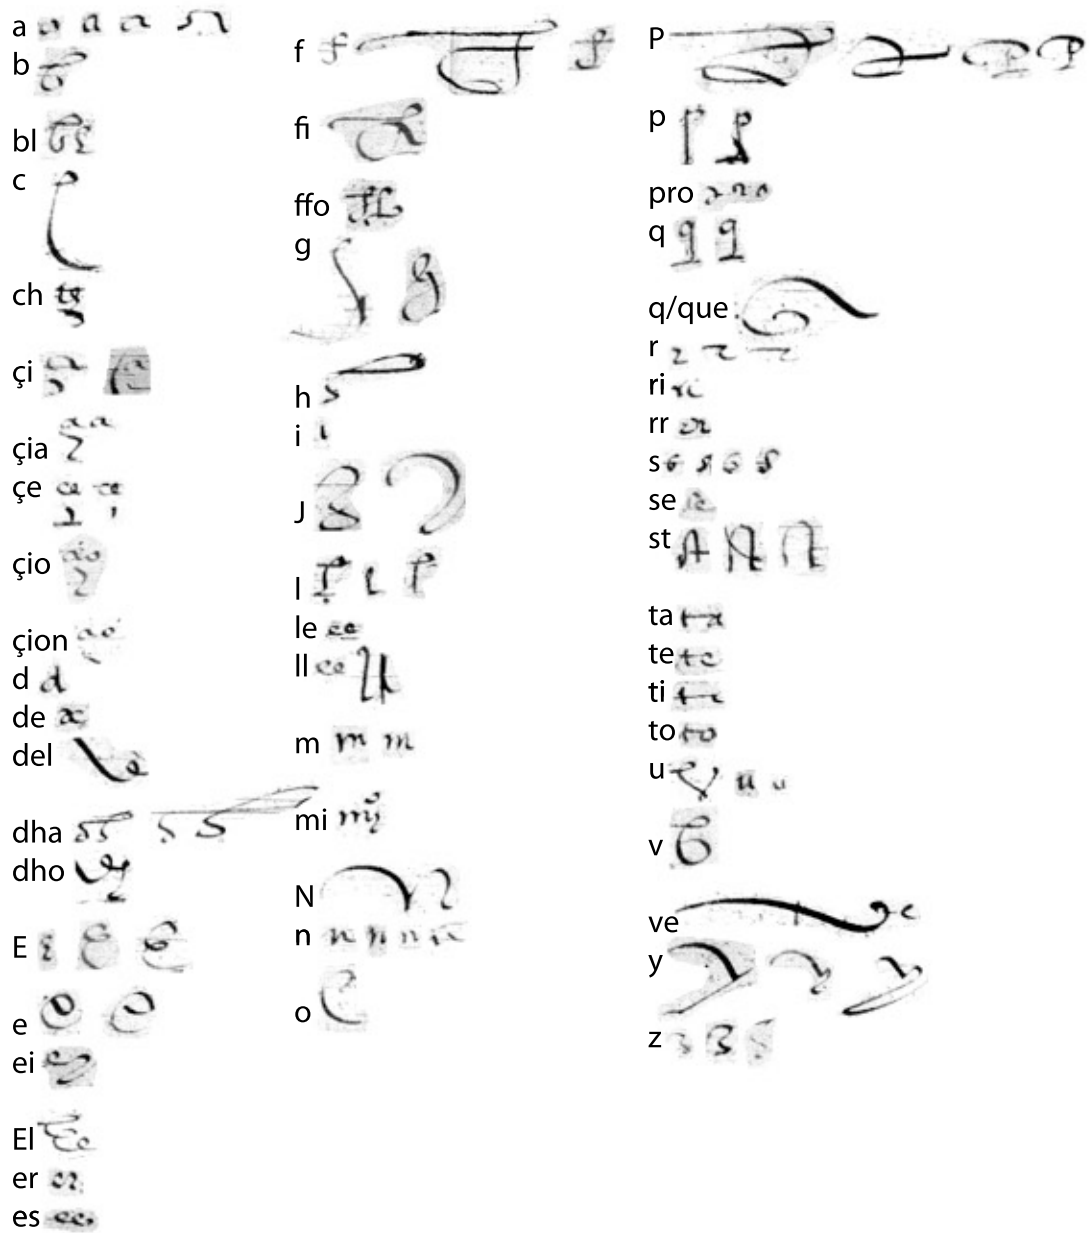 a
b
bl
c
ch
çi
çia
çe
çio
çion
d
de
del
dha
dho
E
e
ei
El
er
es
f
fi
ffo
g
h
i
J
l
le
ll
m
mi
N
n
o
P
p
pro
q
q/que
r
ri
rr
s
se
st
ta
te
ti
to
u
v
ve
y
z